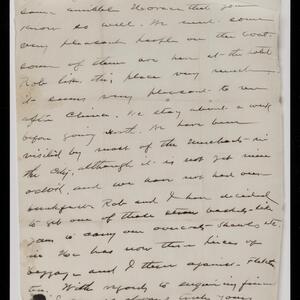 same amiable Horace that you
know so well. We met some
very pleasant people on the boat
some of them are here at the hotel
Rob likes this place very much
it seems very pleasant to me
after China. We stay about a week
before going North. We have been
visited by most of the merchants in
the city, although it is not yet nine
o'clock, and we have not had our
breakfast. Rob and I have decided
to get one of those straw baskets like
to carry our overcoats shawls etc
in. He has now three pieces of
baggage and I three against
ten. With regards to enquiring friends